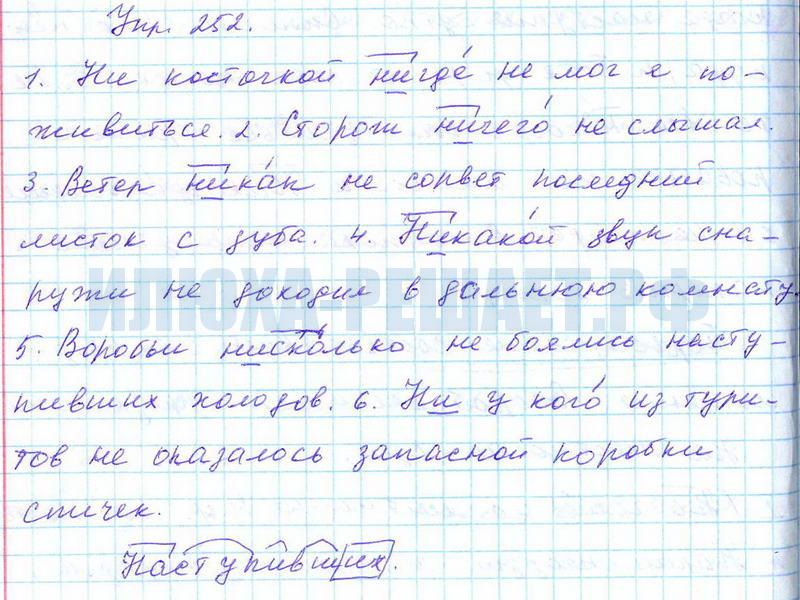 Упр. 252.
1. Ни косточкой нигде́ не мог я по-
живиться. 2. Сторож ничего́ не слышал.
3. Ветер ника́к не сорвет последний
листок с дуба. 4. Никако́й звук сна-
ружи не доходил в дальнюю комнату.
ИЛЮХА-РЕШАЕТ.РФ
5. Воробьи ниско́лько не боялись насту-
пивших холодов. 6. Ни у кого́ из тури-
тов не оказалось запасной коробки
спичек.
Наступивших.